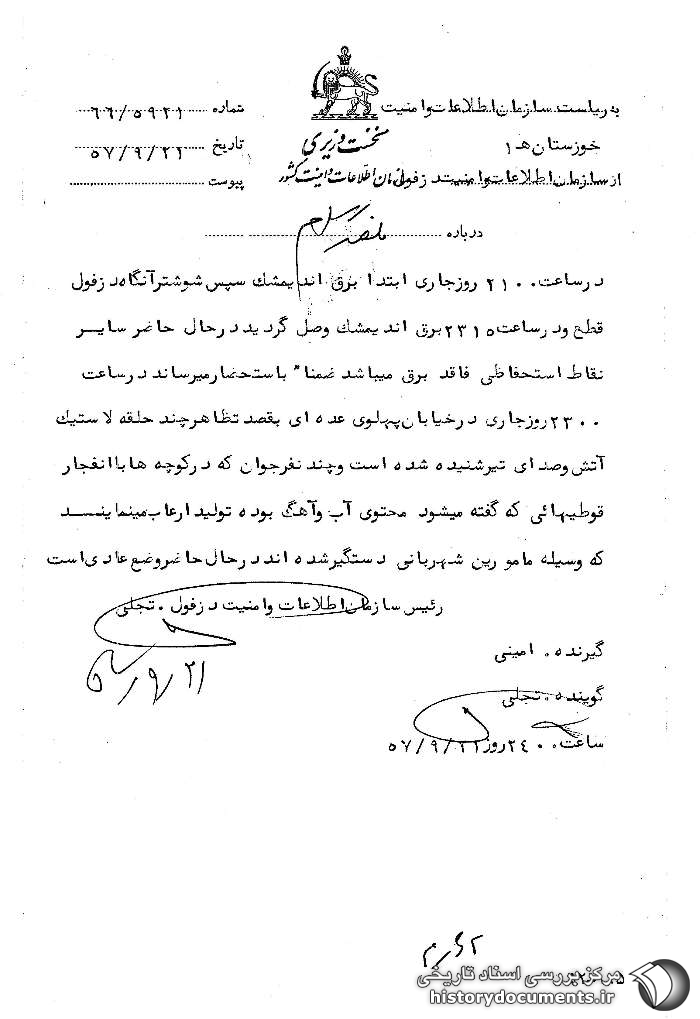 به ریاست سازمان اطلاعات و امنیت
شماره ۶۶/۵۹۲۱
خوزستان هـ ۱
نخست وزیری
تاریخ ۵۷/۹/۲۱
از سازمان اطلاعات و امنیت دزفول
سازمان اطلاعات و امنیت کشور
پیوست
درباره
در ساعت ۲۱۰۰ روزجاری ابتدا برق اندیمشك سپس شوشتر آنگاه دزفول
قطع ودر ساعت ۲۳۱۵ برق اندیمشك وصل گردید در حال حاضر سایر
نقاط استحفاظی فاقد برق میباشد ضمنا" باستحضار میرساند در ساعت
۲۳۰۰ روزجاری در خیابان پهلوی عده ای بقصد تظاهر چند حلقه لاستیك
آتش وصدای تیر شنیده شده است وچند نفر جوان که در کوچه ها با انفجار
قوطیهائی که گفته میشود محتوی آب وآهگ بوده تولید ارعاب مینمایند
که وسیله مامورین شهربانی دستگیر شده اند در حال حاضر وضع عادی است
رئیس سازمان اطلاعات وامنیت دزفول . تجلی
گیرنده . امینی
۲۱/۹
گوینده . تجلی
ساعت ۲۴۰۰ روز ۵۷/۹/۲۱
مرکز بررسی اسناد تاریخی
historydocuments.ir